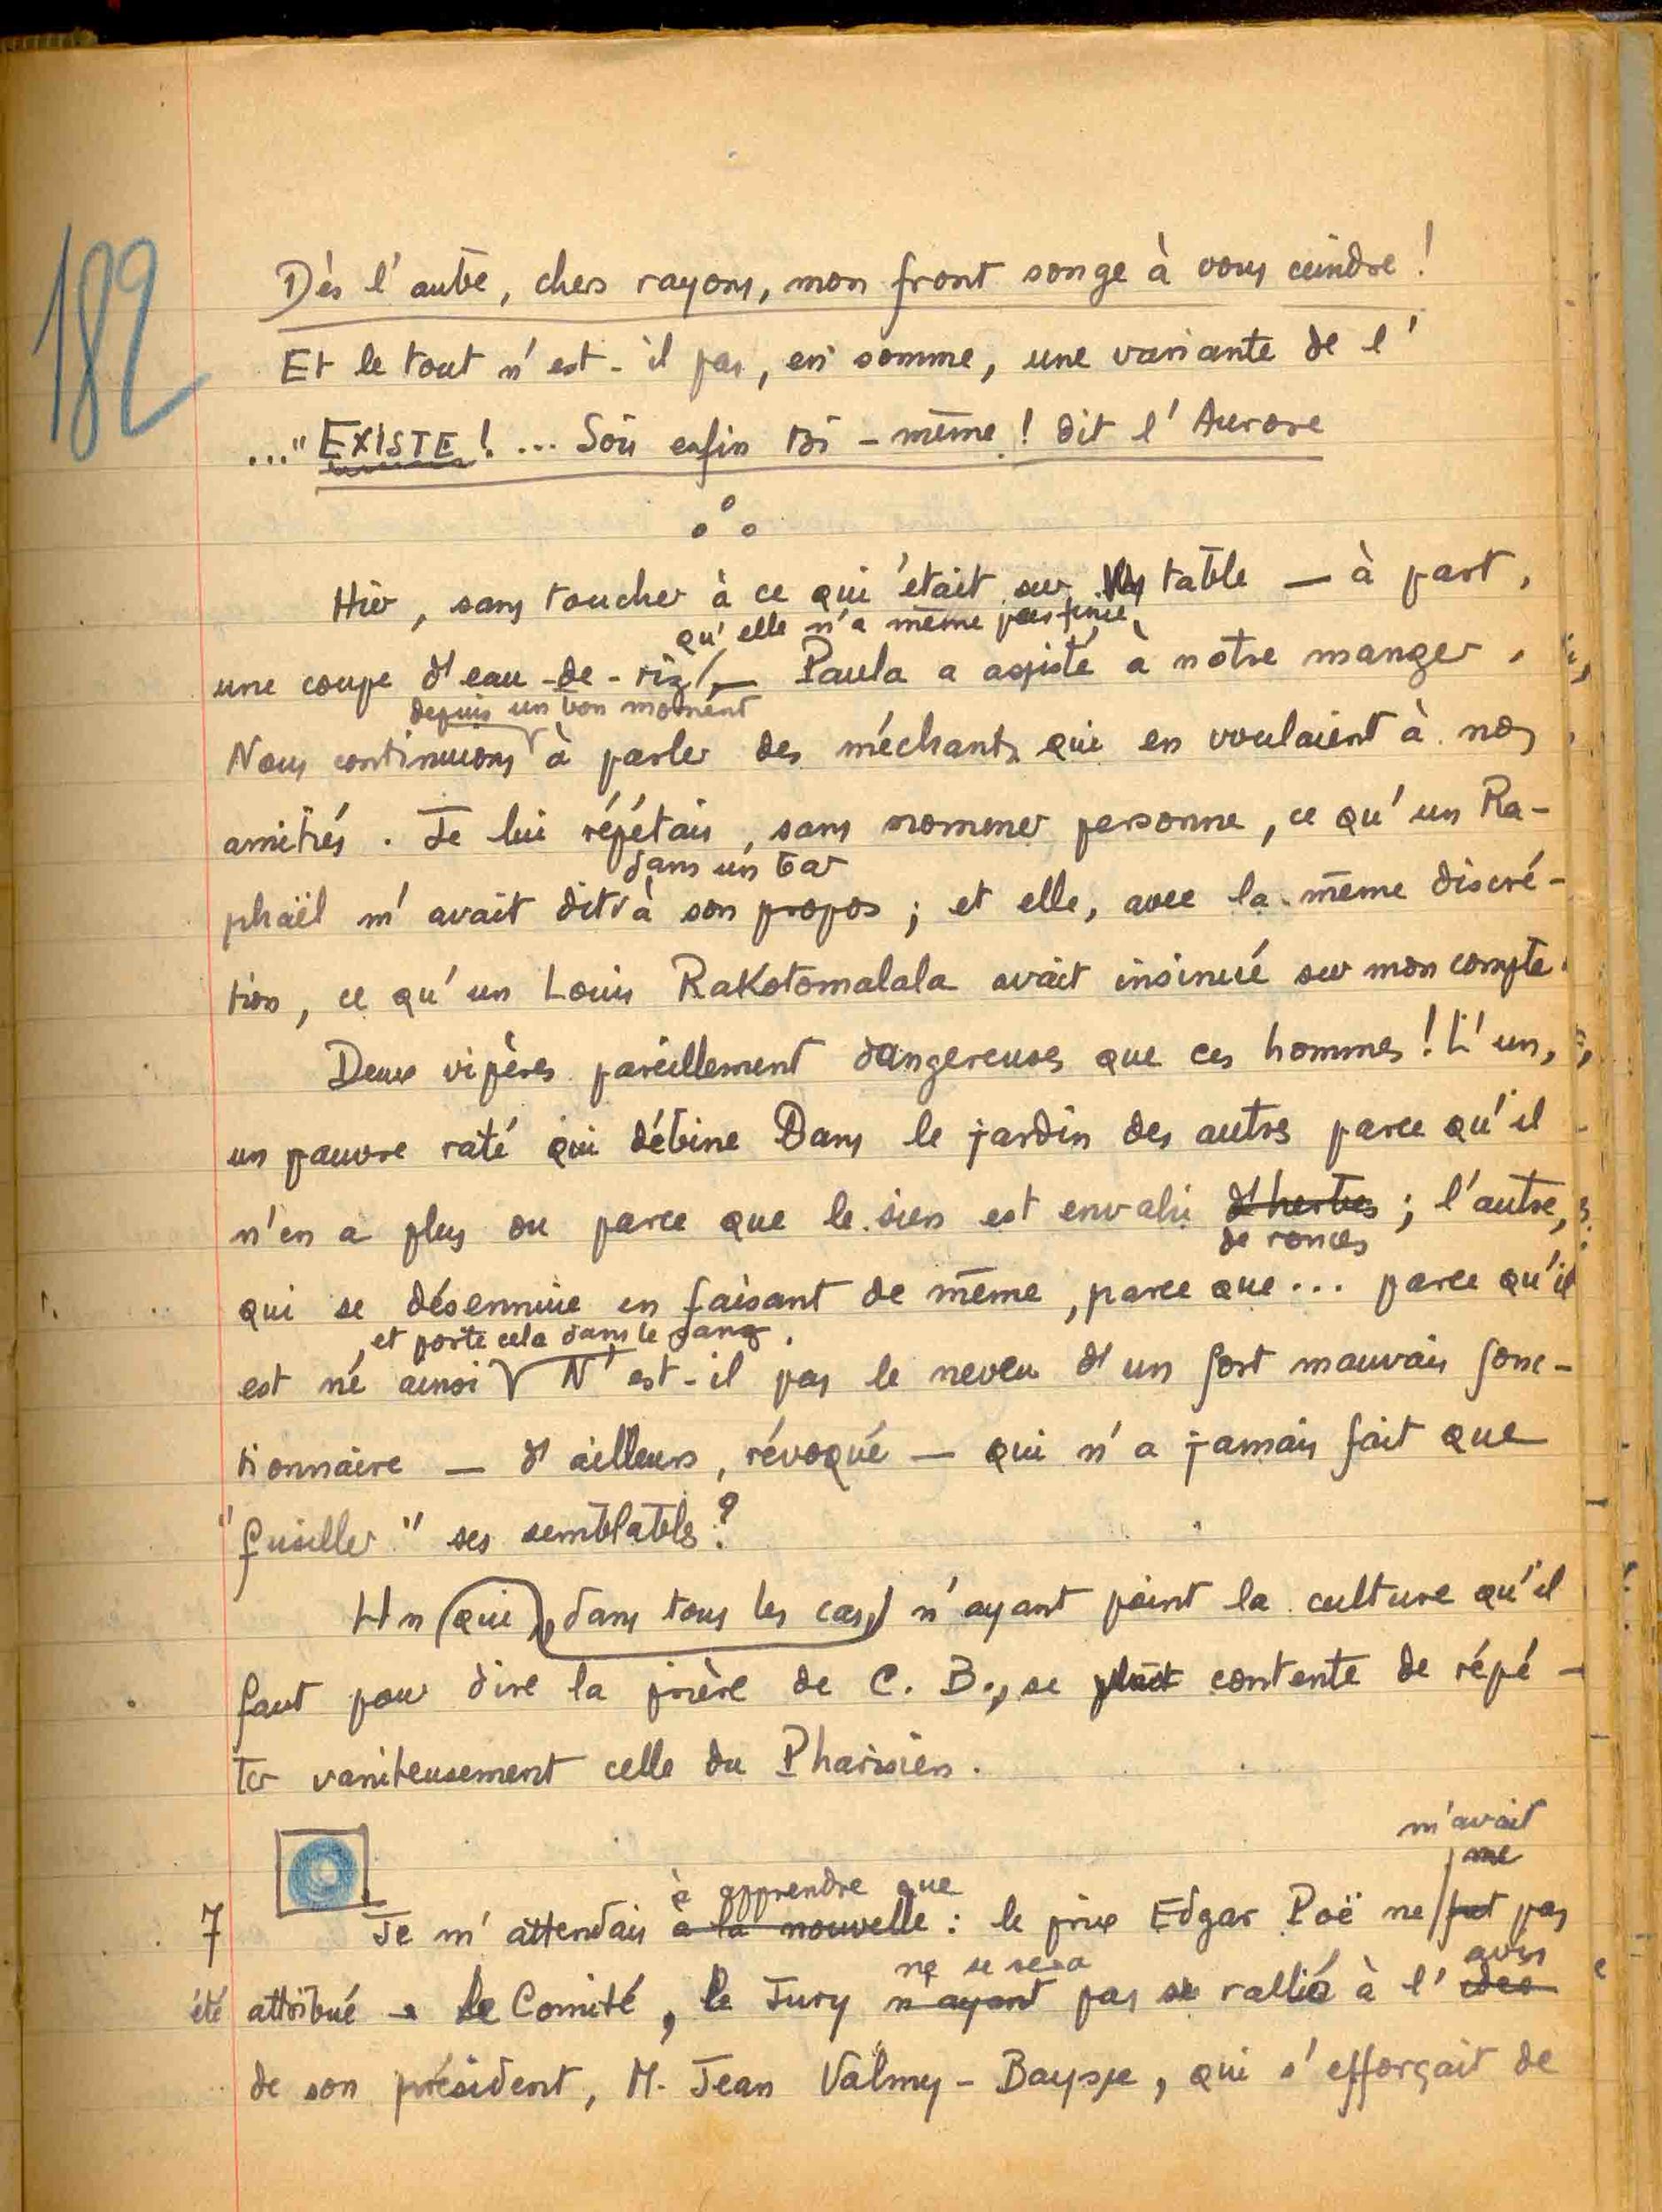 182
Dès l'aube, chers rayons, mon front songe à vous ceindre !
Et le tout n'est-il pas, en somme, une variante de l'
..." EXISTE !... Sois enfin toi-même ! dit l'Aurore
Hier, sans toucher à ce qui était sur table — à part,
qu'elle n'a même pas finie,
une coupe d'eau-de-riz, — Paula a assisté à notre manger.
depuis un bon moment
Nous continuons à parler des méchants qui en voulaient à nos
amitiés. Je lui répétais, sans nommer personne, ce qu'un Ra-
dans un bar
phaël m'avait dit à son propos ; et elle, avec la même discré-
tion, ce qu'un Louis Rakotomalala avait insinué sur mon compte.
Deux vipères pareillement dangereuses que ces hommes ! L'un,
un pauvre raté qui débine Dans le jardin des autres parce qu'il
n'en a plus ou parce que le sien est envahi d'herbes ; l'autre,
de ronces
qui se désennuie en faisant de même, parce que... parce qu'il
, et porte cela dans le sang.
est né ainsi N'est-il pas le neveu d'un fort mauvais fonc-
tionnaire — d'ailleurs, révoqué — qui n'a jamais fait que
"fusiller" ses semblables ?
Un (qui), dans tous les cas, n'ayant point la culture qu'il
faut pour dire la prière de C. B., se plait contente de répé-
ter vaniteusement celle du Pharisien.
m'avait
me
à apprendre que
7 Je m'attendais à la nouvelle : le prix Edgar Poë ne fut pas
ne se sera avis
été attribué - le Comité, le Jury n'ayant pas se rallié à l'
de son président, M. Jean Valmy-Baysse, qui s'efforçait de